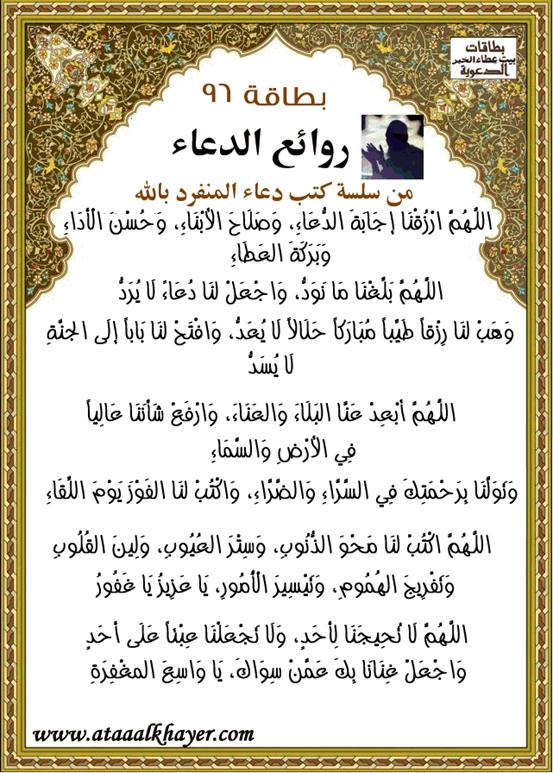 بطاقات
بيت عطاء الخير
الدعوية
بطاقة ٩٦
روائع الدعاء
من سلسة كتب دعاء المنفرد بالله
اللَّهُمَّ ارْزُقْنَا إجَابَةَ الدُّعَاءِ، وَصَلَاحَ الأَبْنَاءِ، وَحُسْنَ الْأدَاءِ
وَبَرَكَةَ العَطَاءِ
اللَّهُمَّ بَلِّغْنَا مَا نَوَدُّ، وَاجْعَلْ لنَا دُعَاءً لَا يُرَدُّ
وَهَبْ لنَا رِزْقاً طَيِّباً مُبَارَكاً حَلَالاً لَا يُعَدُّ، وَافْتَحْ لنَا بَاباً إلَى الجنَّةِ
لَا يُسَدُّ
اللَّهُمَّ أبْعِدْ عَنَّا البَلَاءَ وَالعَنَاءَ، وَارْفَعْ شَأنَنَا عَالِياً
فِي الأرْضِ وَالسَّمَاءِ
وَتَوَلَّنَا بِرَحْمَتِكَ فِي السَّرَّاءِ وَالضَّرَّاءِ، وَاكْتُبْ لنَا الفَوْزَ يَوْمَ اللِّقَاءِ
اللَّهُمَّ اكْتُبْ لنَا مَحْوَ الذُّنُوبِ، وَسِتْرَ العُيُوبِ، وَلِينَ القُلُوبِ
وَتَفْرِيجَ الهُمُومِ، وَتَيْسِيرَ الْأمُورِ، يَا عَزِيزُ يَا غَفُورُ
اللَّهُمَّ لَا تُحِيجَنَا لِأحَدٍ، وَلَا تَجْعَلْنَا عِبْئاً عَلَى أحَدٍ
وَاجْعَلْ غِنَانَا بِكَ عَمَّنْ سِوَاكَ، يَا وَاسِعَ المغْفِرَةِ
www.ataaalkhayer.com